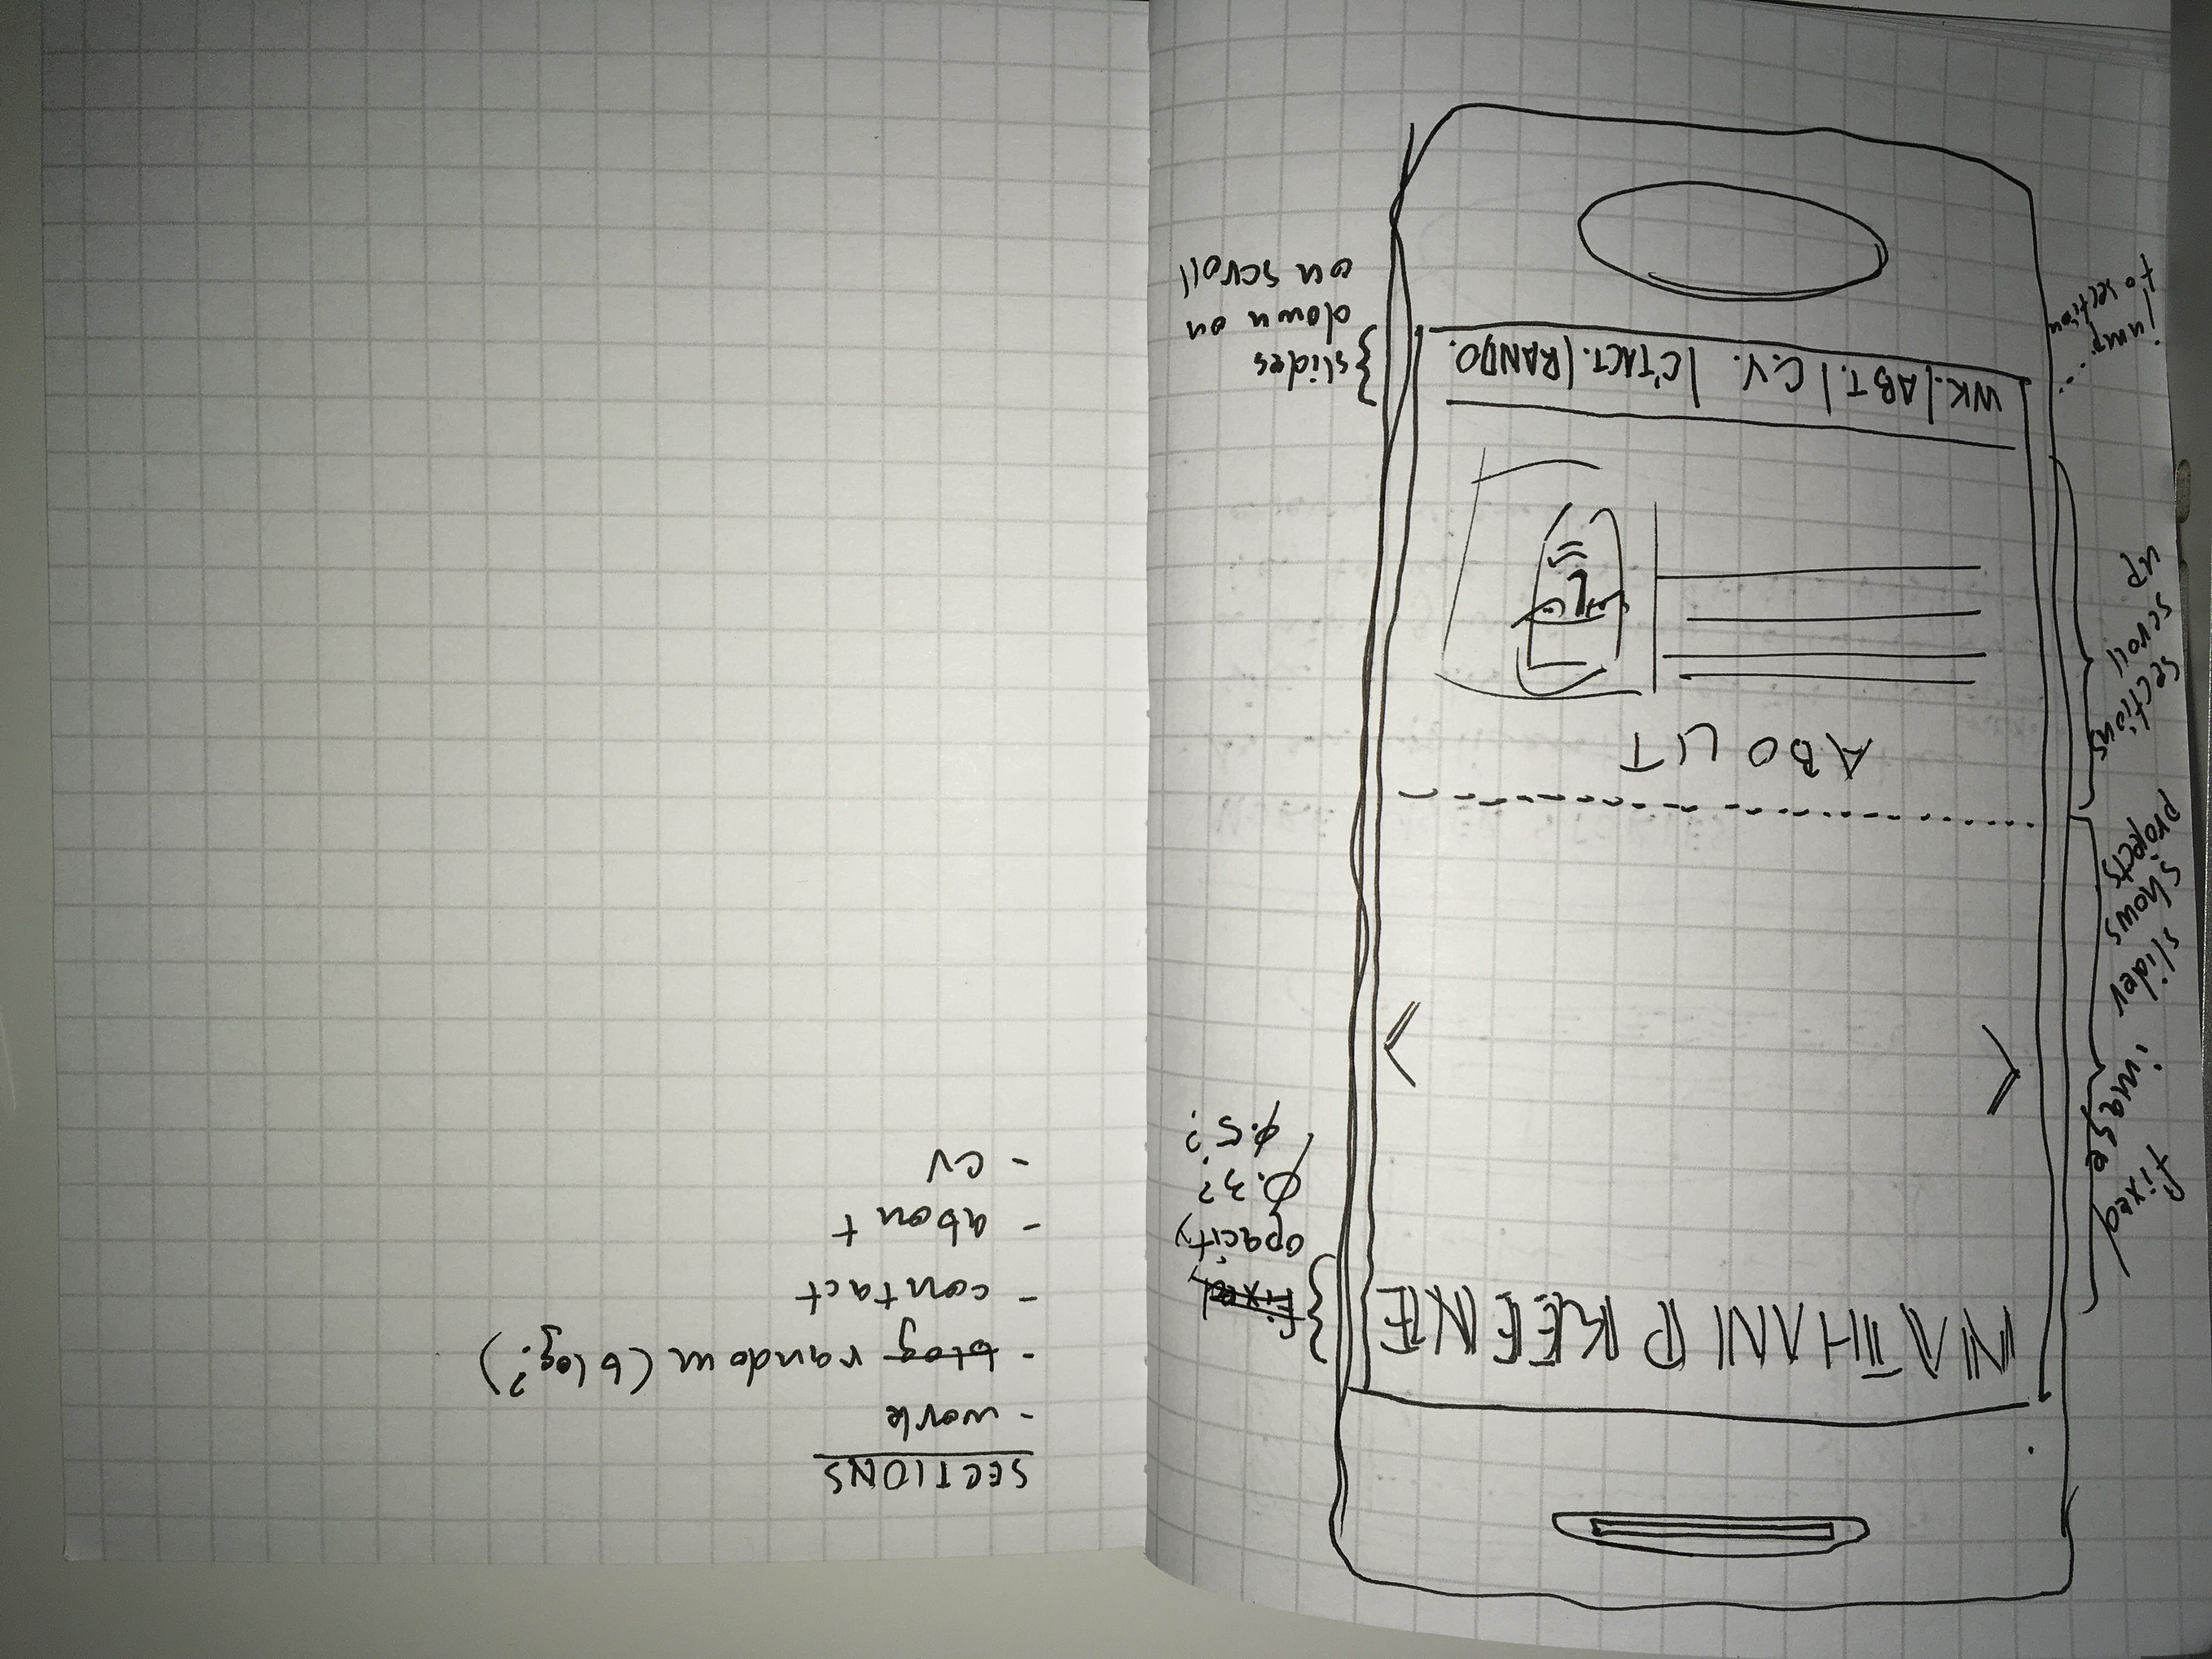 NATHAN P KEENE
fixed,
opacity
0.3?
0.5?
fixed
image
slider
shows
projects
<
>
ABOUT
sections
scroll
up
WK. | ABT. | C.V. | C'TACT. | RANDO.
jump
to section
slides
down on
on scroll
SECTIONS
- work
- blog random (blog?)
- contact
- about
- CV